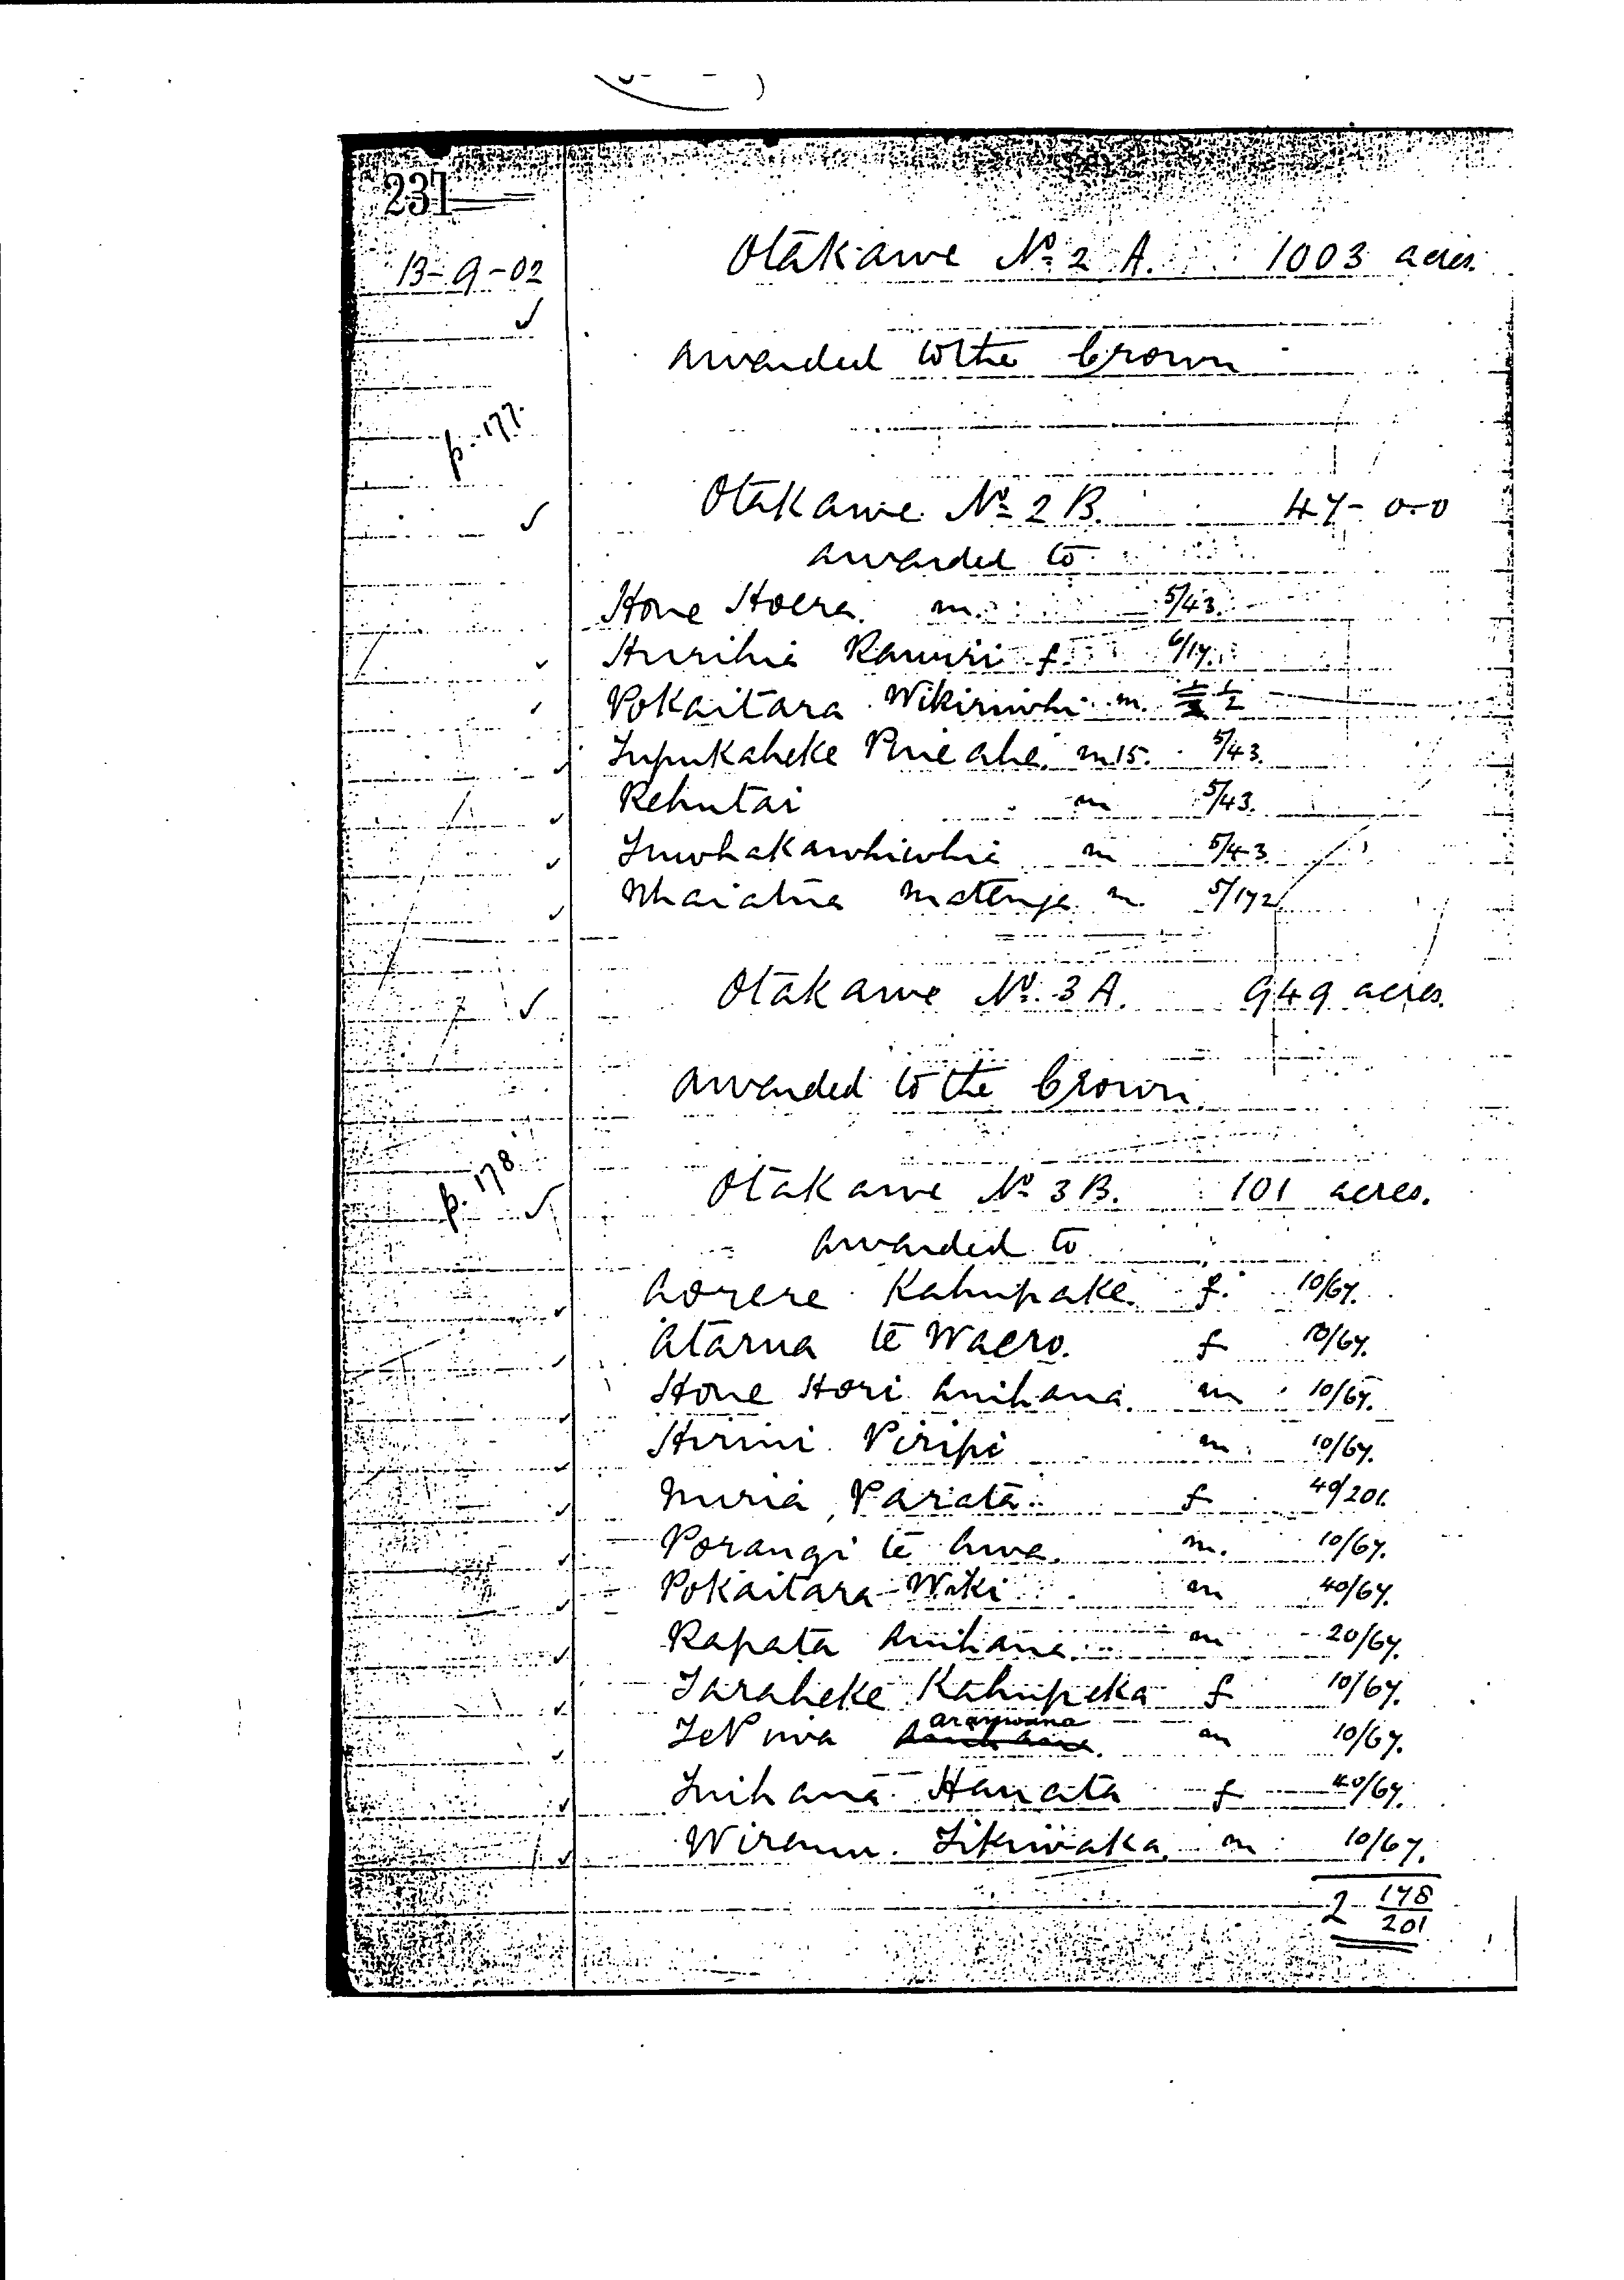 231
13-9-02
Otakawe No 2 A. 1003 acres.
awarded to the Crown
p. 177.
Otakawe No 2 B. 47-0-0
awarded to
Hone Hoera. m. 5/43.
Hurihia Rawiri f. 6/17.
Pokaitara Wikiriwhi m. 1/2
Tupukaheke m15. 5/43.
Rehutai m 5/43.
Tuwhakawhiwhia m 5/43.
Matenga m. 5/172
Otakawe No 3 A. 949 acres.
awarded to the Crown.
p. 178
Otakawe No 3 B. 101 acres.
awarded to
Aorere Kahupake. f. 10/67.
Atarua te Waero. f 10/67.
Hone Hori Anihana. m 10/67.
Hirini Piripi m. 10/67.
Miria Parata f 40/201.
Porangi te Awa. m. 10/67.
Pokaitara Wiki m 40/67.
Rapata Anihana m 20/67.
Taraheke Kahupeka f 10/67.
m 10/67.
f 40/67.
Wiremu m 10/67.
2 178/201